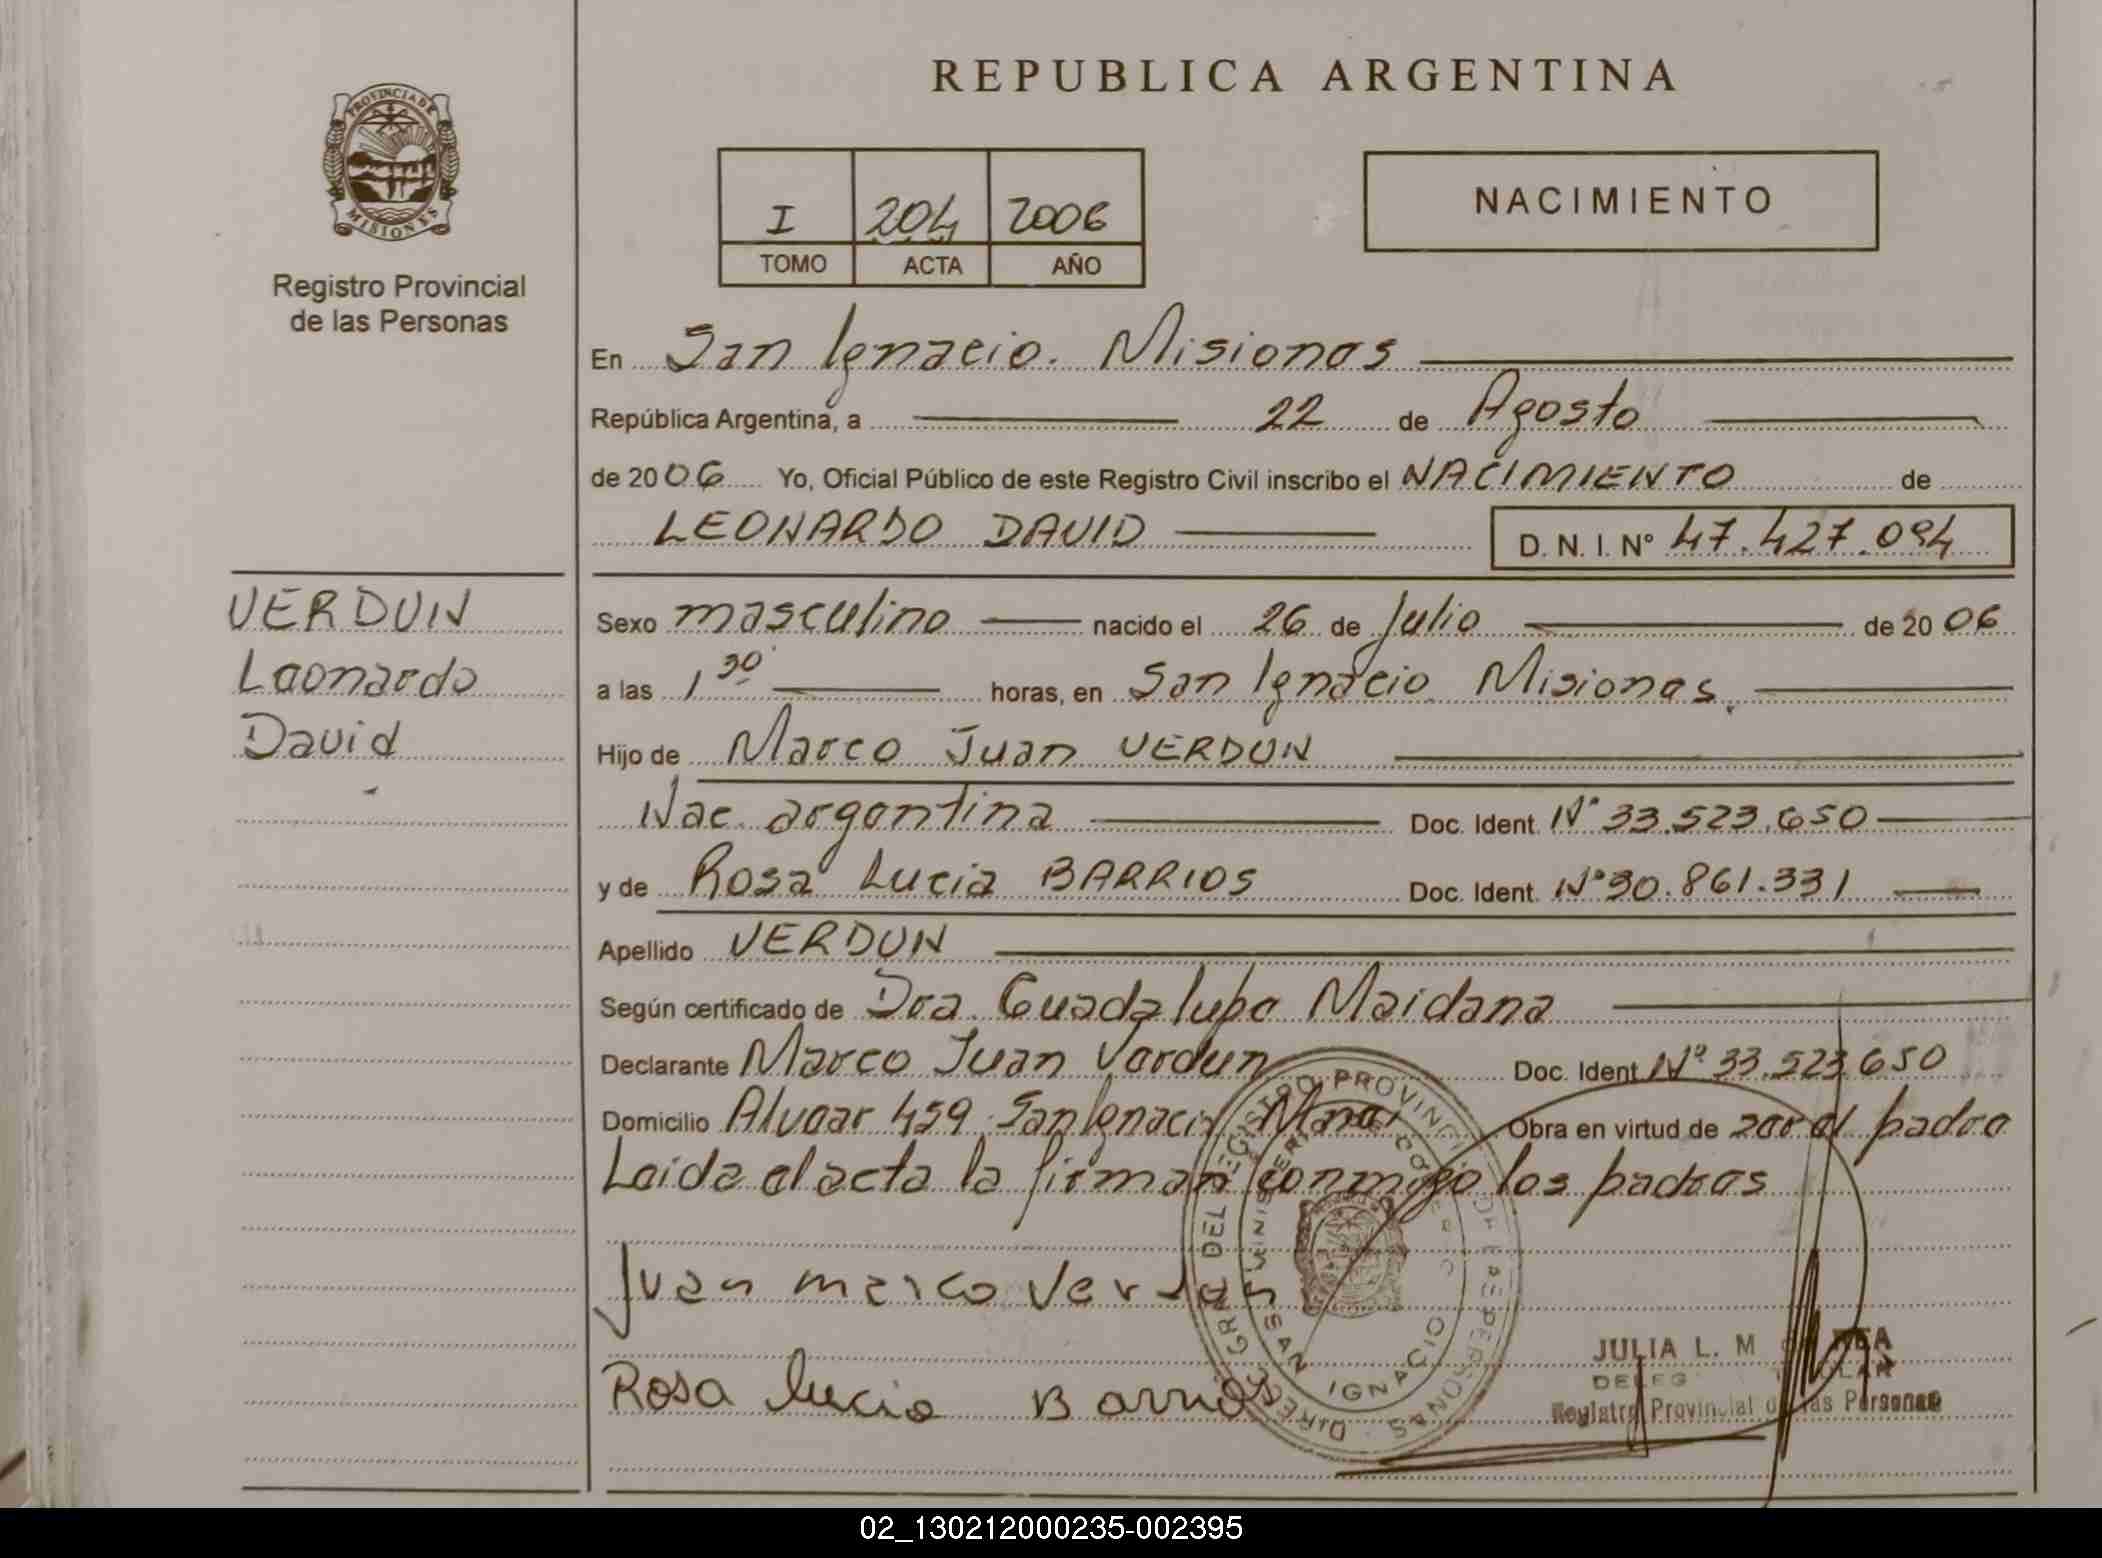 REPUBLICA ARGENTINA
PROVINCIA DE
MISIONES
Registro Provincial
de las Personas
I 204 2006
TOMO ACTA AÑO
NACIMIENTO
En San Ignacio. Misiones
República Argentina, a 22 de Agosto
de 2006 Yo, Oficial Público de este Registro Civil inscribo el NACIMIENTO de
LEONARDO DAVID D. N. I. Nº 47.427.094
VERDUN
Leonardo
David
Sexo masculino nacido el 26 de Julio de 2006
a las 1 30 horas, en San Ignacio Misiones.
Hijo de Marco Juan VERDUN
Nac. argentina Doc. Ident. Nº 33.523.650
y de Rosa Lucia BARRIOS Doc. Ident. Nº 30.861.331
Apellido VERDUN
Según certificado de Dra. Guadalupe Maidana
Declarante Marco Juan Verdun Doc. Ident. Nº 33.523.650
Domicilio Alvear 459 San Ignacio Mnes Obra en virtud de ser el padre
Leida el acta la firman conmigo los padres
Juan marco Verdun
Rosa Lucia Barrios
DIREC. GRAL. DEL REGISTRO PROVINCIAL DE LAS PERSONAS
SAN IGNACIO
JULIA L. M
Registro Provincial de las Personas
02_130212000235-002395